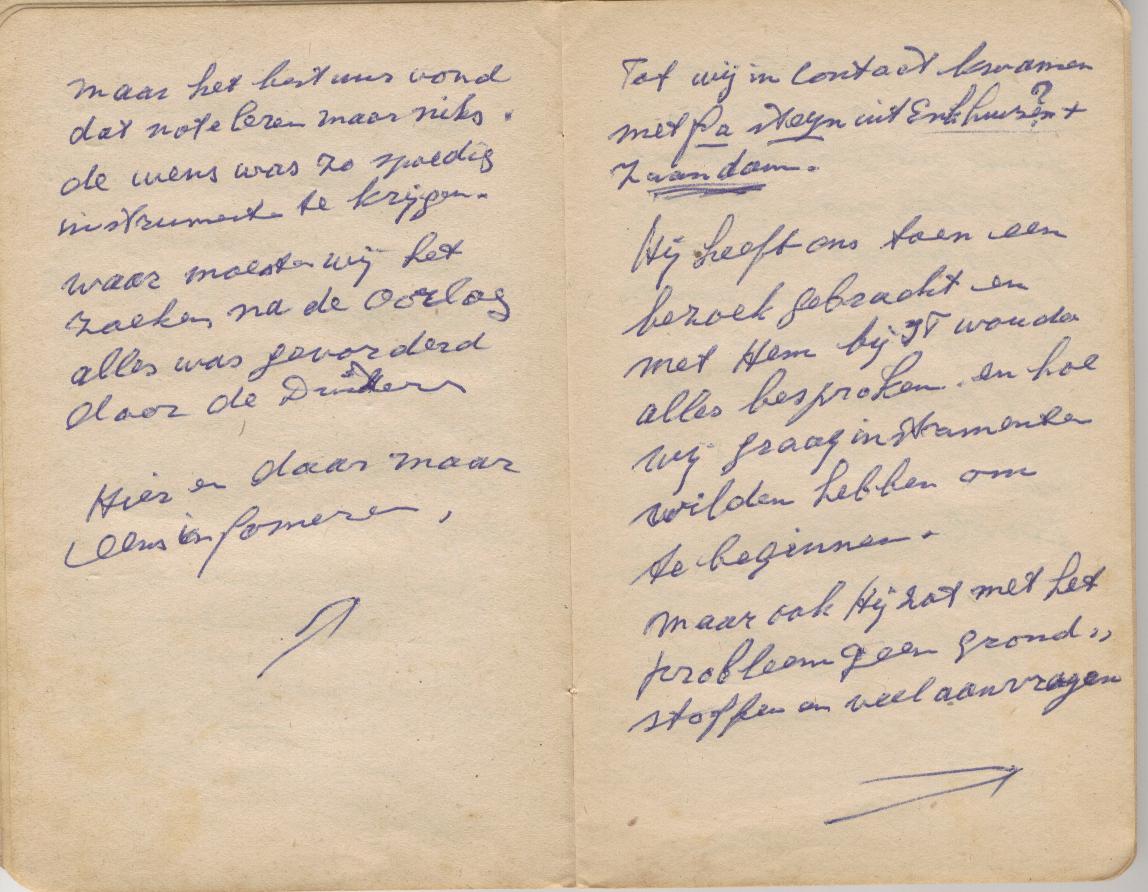 maar het bestuur vond
dat note leren maar niks.
de wens was zo spoedig
instrumenten te krijgen.
waar moesten wij het
zoeken na de Oorlog
alles was gevorderd
door de Duitsers
Hier en daar maar
eens infomeren,
Tot wij in Contact kwamen
met fa Steyn uit Enkhuizen ? +
Zaandam.
Hij heeft ons toen een
bezoek gebracht en
met Hem bij JT wouda
alles besproken en hoe
wij graag instramenten
wilden hebben om
te beginnen.
maar ook Hij zat met het
probleem geen grond,,
stoffen en veel aanvragen